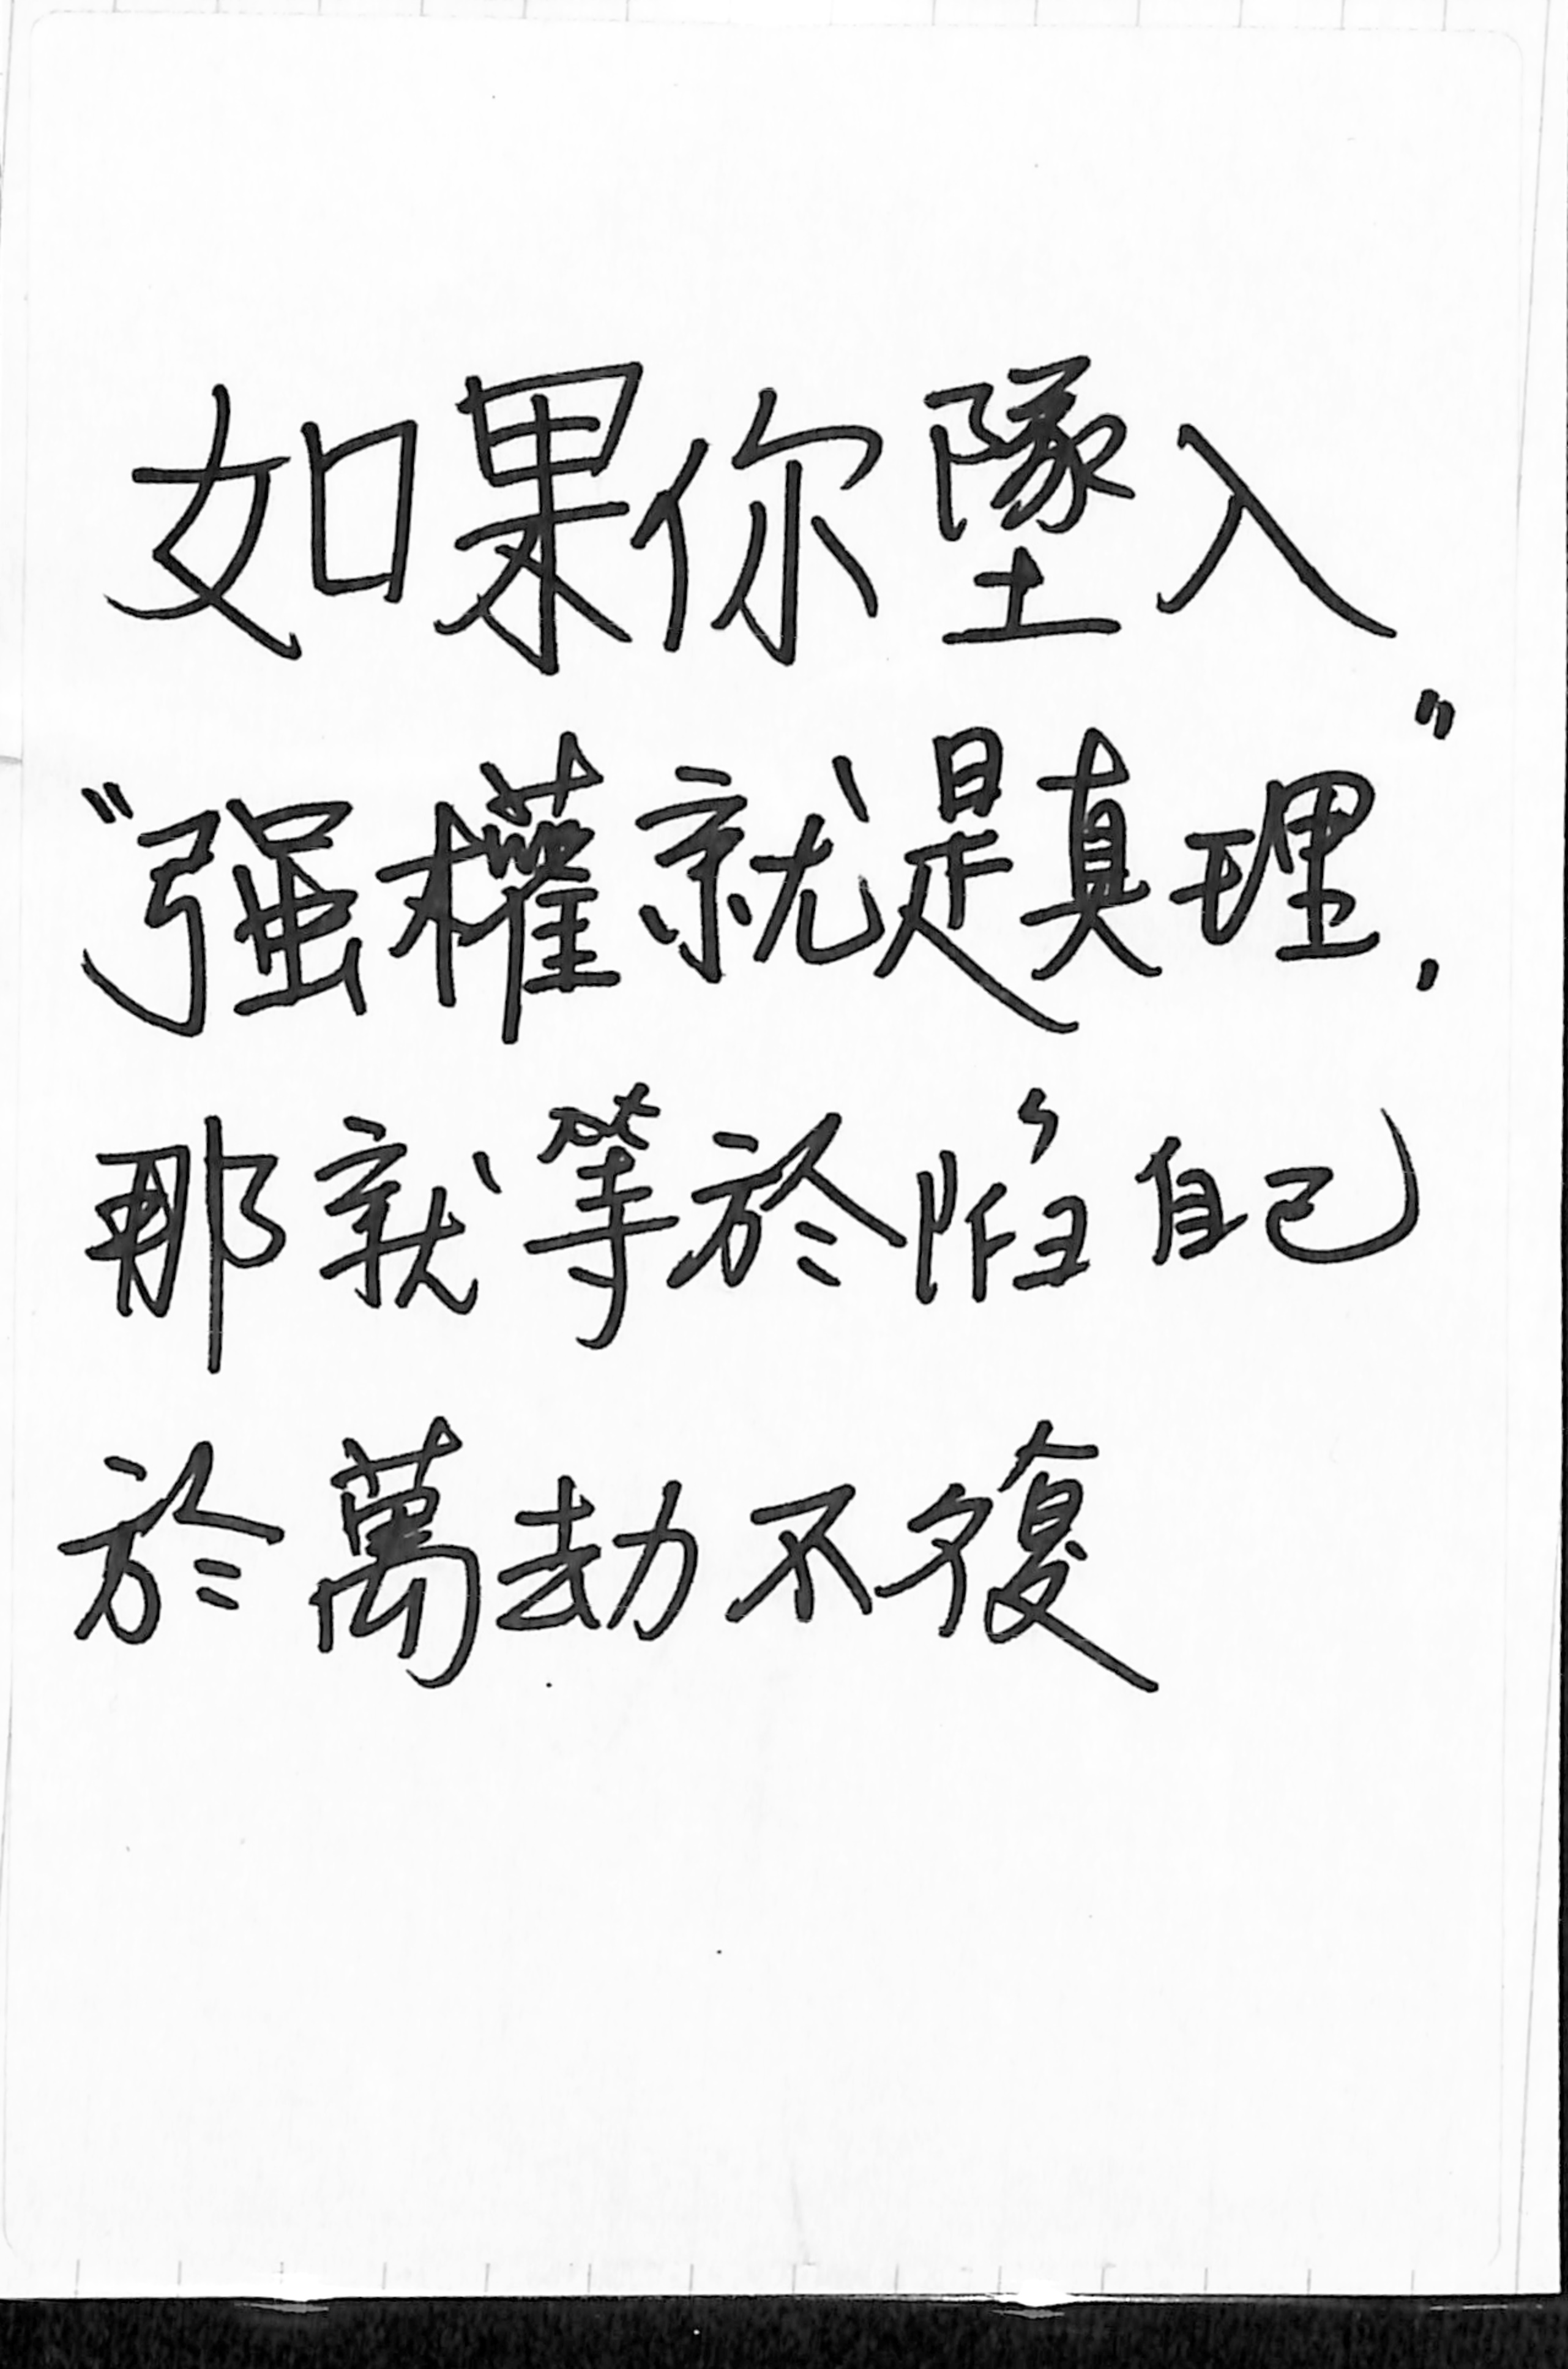 如果你墜入
"强權就是真理",
那就等於陷自己
於萬劫不復